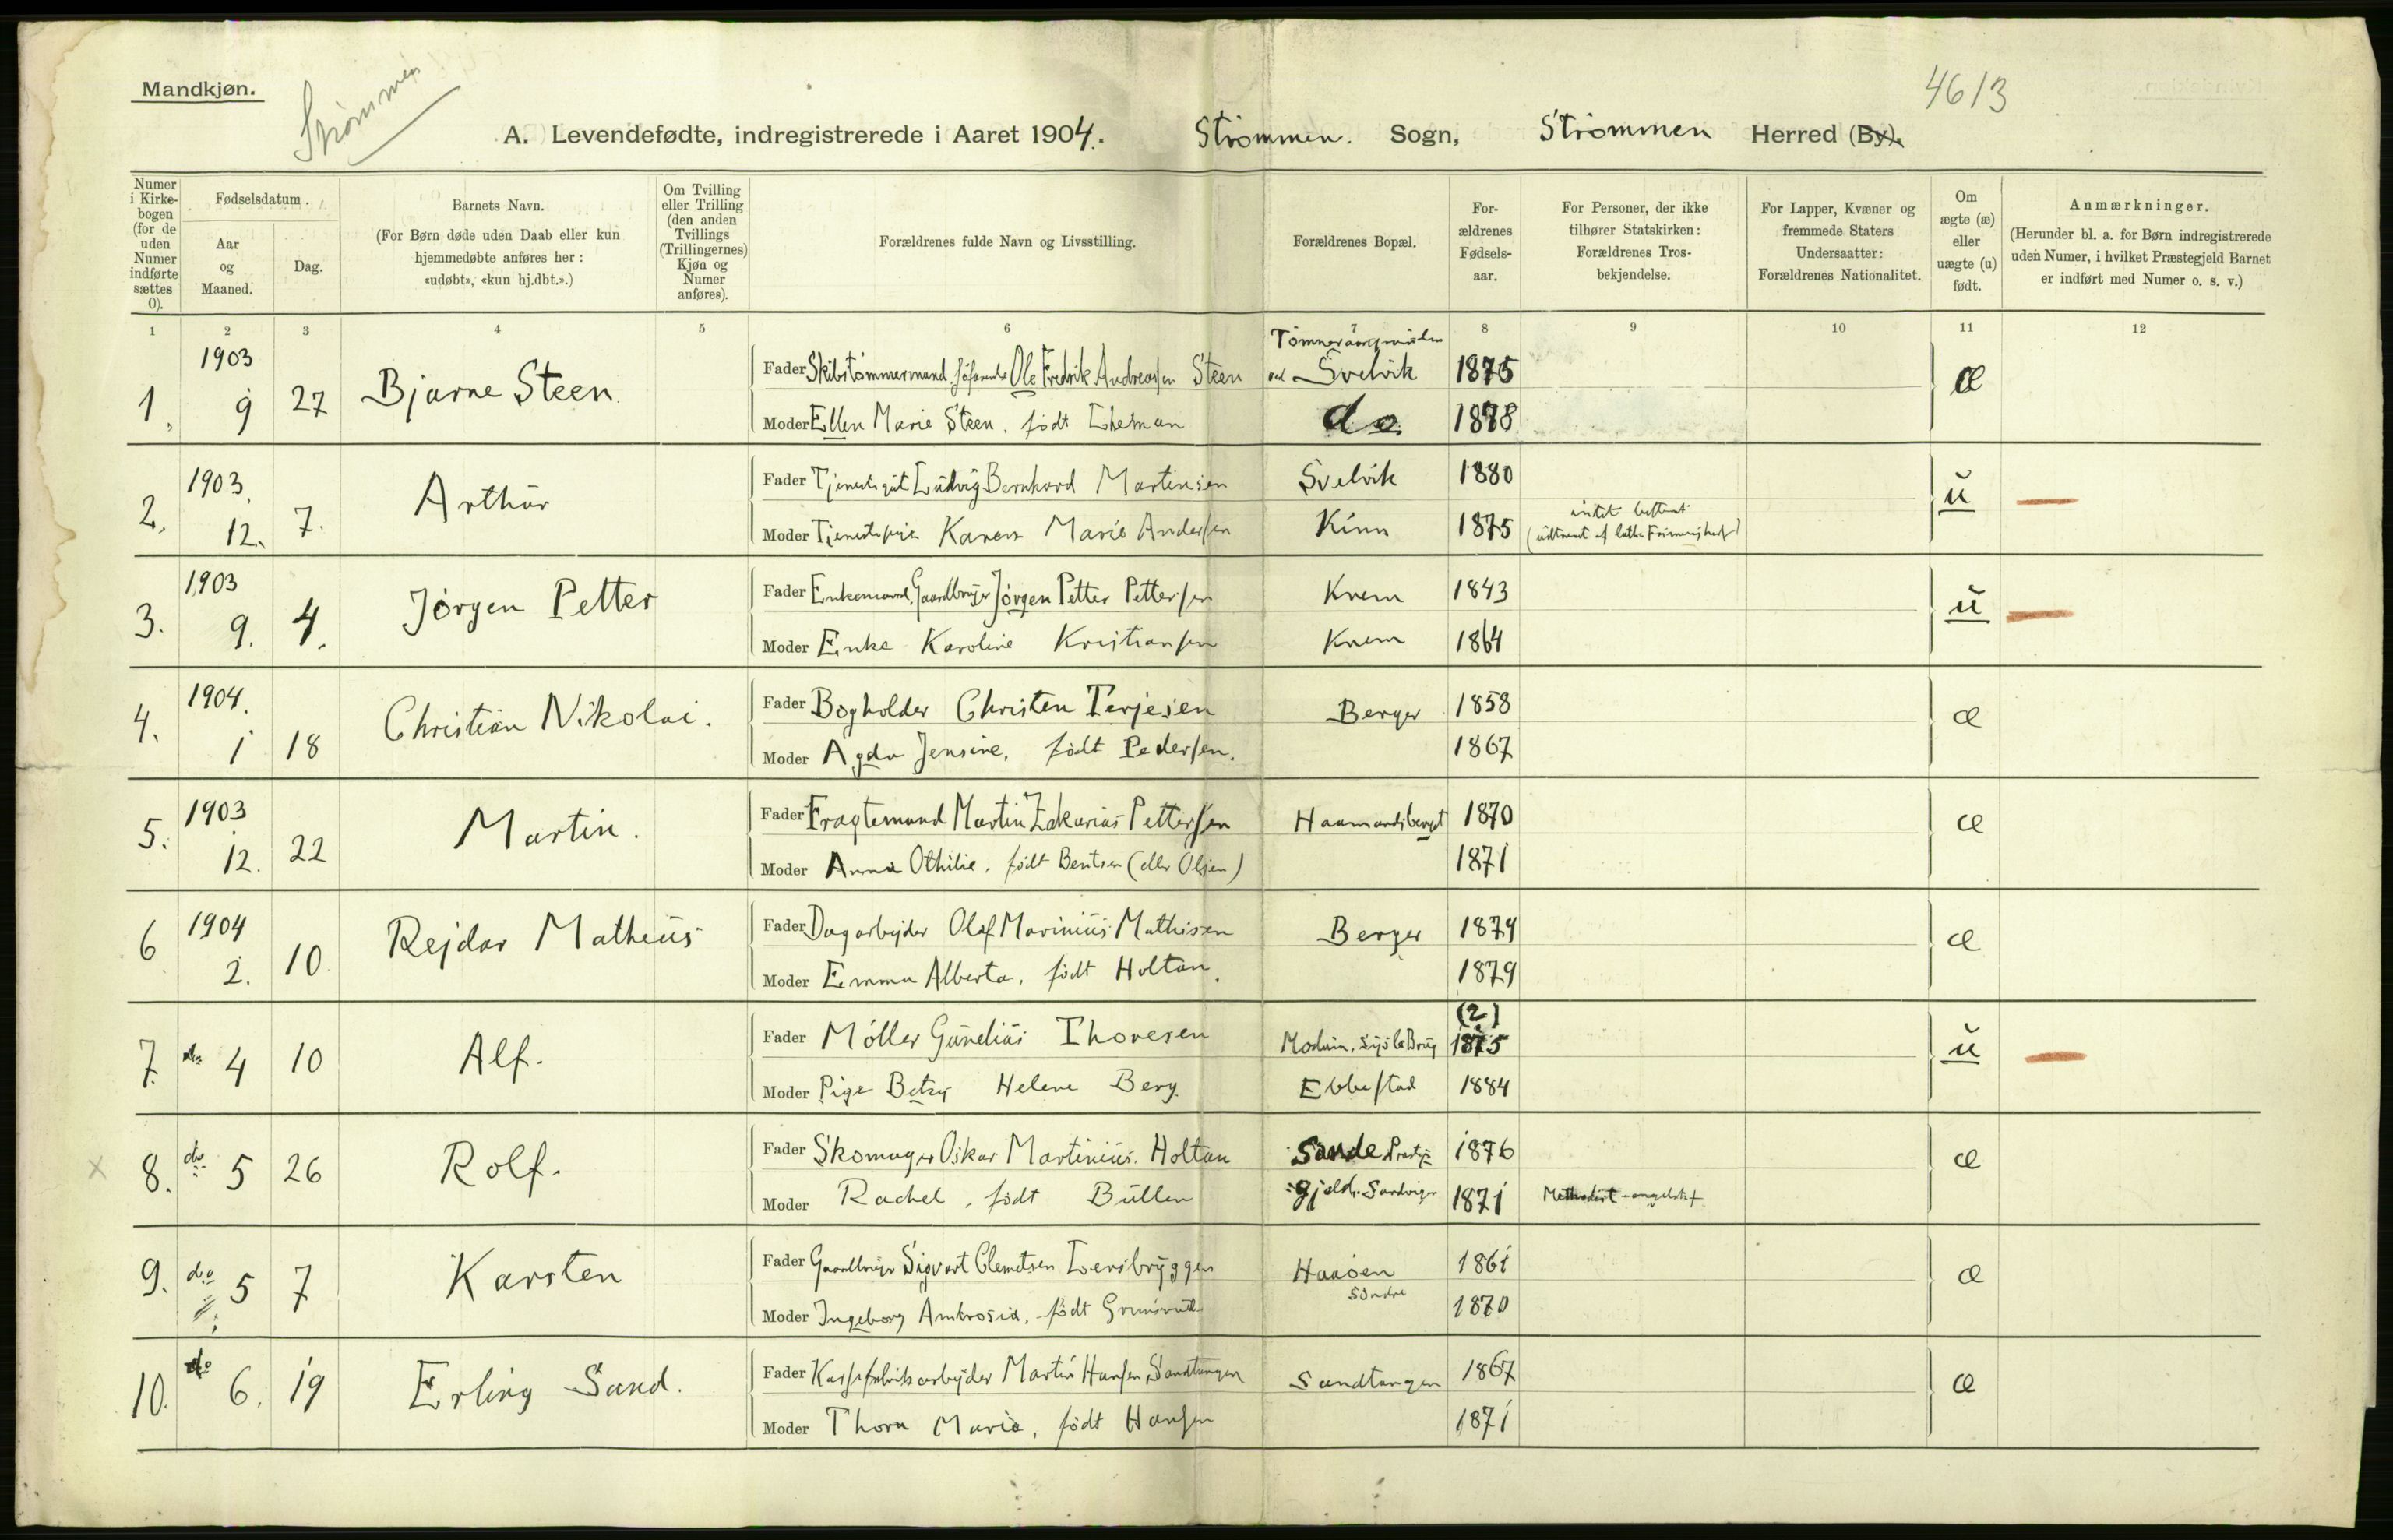 Mandkjøn.
Strømmen
4613
A. Levendefødte, indregistrerede i Aaret 1904. Strømmen. Sogn, Strømmen Herred (By).
Numer i Kirkebogen (for de uden Numer indførte sættes 0).
Fødselsdatum.
Aar og Maaned.
Dag.
Barnets Navn.
(For Børn døde uden Daab eller kun hjemmedøbte anføres her: «udøbt», «kun hj.dbt.».)
Om Tvilling eller Trilling (den anden Tvillings (Trillingernes) Kjøn og Numer anføres).
Forældrenes fulde Navn og Livsstilling.
Forældrenes Bopæl.
For-ældrenes Fødsels-aar.
For Personer, der ikke tilhører Statskirken: Forældrenes Tros-bekjendelse.
For Lapper, Kvæner og fremmede Staters Undersaatter: Forældrenes Nationalitet.
Om ægte (æ) eller uægte (u) født.
Anmærkninger.
(Herunder bl. a. for Børn indregistrerede uden Numer, i hvilket Præstegjeld Barnet er indført med Numer o. s. v.)
1 2 3 4 5 6 7 8 9 10 11 12
1. 1903 9 27 Bjarne Steen
Fader Skibstømmermand Ole Fredrik Andreassen Steen ved Svelvik 1875 æ
Moder Ellen Marie Steen, født do 1878
2. 1903. 12. 7. Arthur
Fader Tjenestegut Ludvig Bernhard Martinsen Svelvik 1880 u
Moder Tjenestepige Karen Marie Andersen Kinn 1875 intet bestemt
3. 1903 9. 4. Jørgen Petter
Fader Enkemand, Gaardbruger Jørgen Petter Pettersen Knem 1843 u
Moder Enke Karoline Kristiansen Knem 1864
4. 1904. 1 18 Christian Nikolai.
Fader Bogholder Christen Terjesen Berger 1858 æ
Moder Agda Jensine, født Pedersen. 1867
5. 1903 12. 22 Martin.
Fader Fragtemand Martin Zakarias Pettersen 1870 æ
Moder Anna Othilie, født Bentsen (eller Olsen) 1871
6 1904 2. 10 Rejdar Matheus
Fader Dagarbejder Olaf Marinius Mathisen Berger 1879 æ
Moder Emma Alberta, født Holtan. 1879
(2)
7. do 4 10 Alf.
Fader Møller Gunelius Thoresen Modum, 1875 u
Moder Pige Betzy Helene Berg Ebbestad 1884
x 8. do 5 26 Rolf.
Fader Skomager Oskar Martinius Holtan Sande Præste 1876 æ
Moder Rachel, født Bullen gjeld. 1871 Methodist
9. do 5 7 Karsten
Fader Gaardbruger Sigvart Clemetsen Lersbryggen Haaøen 1861 æ
Søndre
Moder Ingeborg Ambrosia, født 1870
10. do 6. 19 Erling Sand.
Fader Martin Hansen Sandtangen Sandtangen 1867 æ
Moder Thora Marie, født Hansen 1871